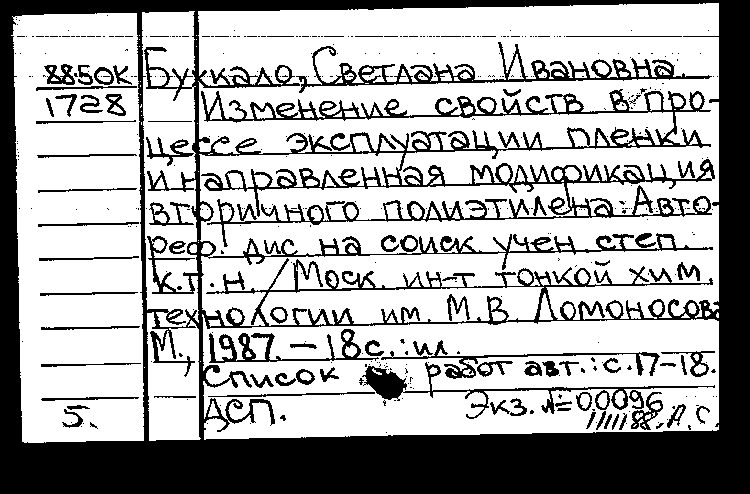 88-5ОК Буккало, Светлана Ивановна.
1728 Изменение свойств в про-
цессе эксплуатации пленки
и направленная модификация
вторичного полиэтилена: Авто-
реф. дис на соиск учен степ.
к.т.н. / Моск. ин-т тонкой хим.
технологии им. М.В. Ломоносова
М., 1987. – 18 с. : ил.
Список работ авт.: с. 17-18.
5. ДСП. Экз. №=00096
А.С.